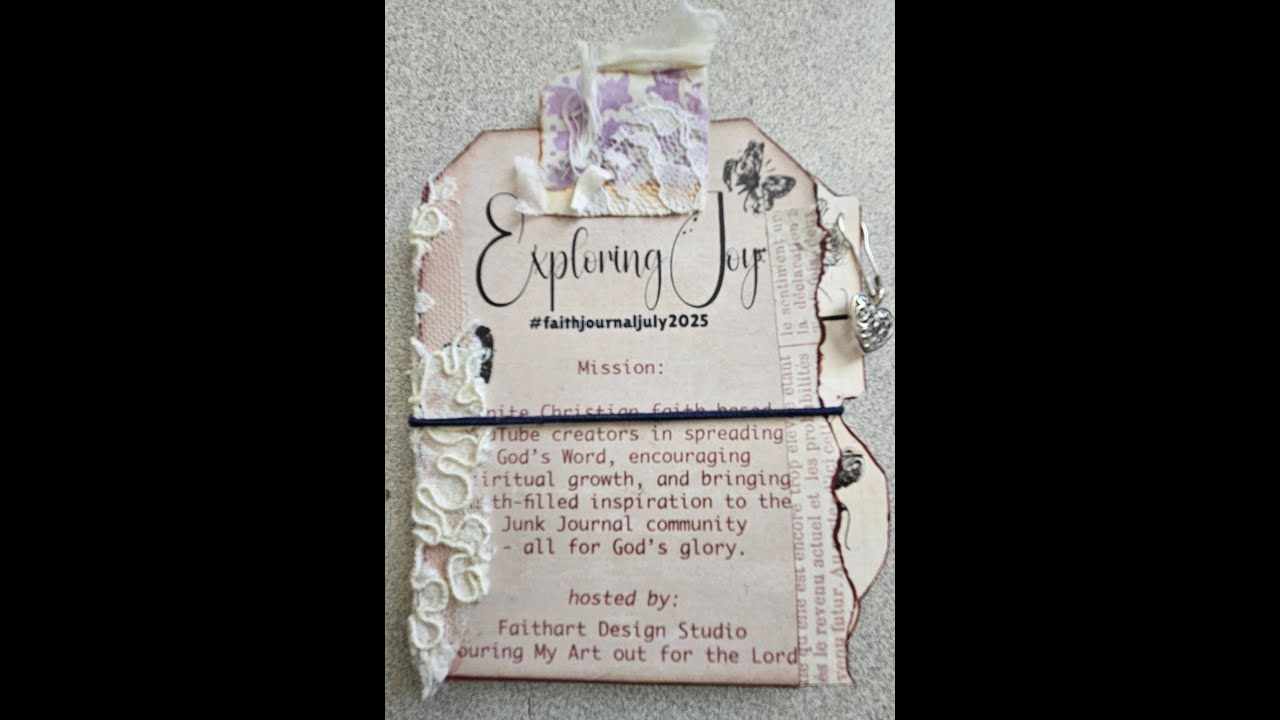 Exploring Joy
#faithjournaljuly2025
Mission:
nite Christian faith based
uTube creators in spreading
God's Word, encouraging
iritual growth, and bringing
th-filled inspiration to the
Junk Journal community
- all for God's glory.
hosted by:
Faithart Design Studio
ouring My Art out for the Lord
le sentiment un
la déclaration
étant
trop élevé
encore
que elle est
probabilités
es le revenu actuel et les
venu futur. Au